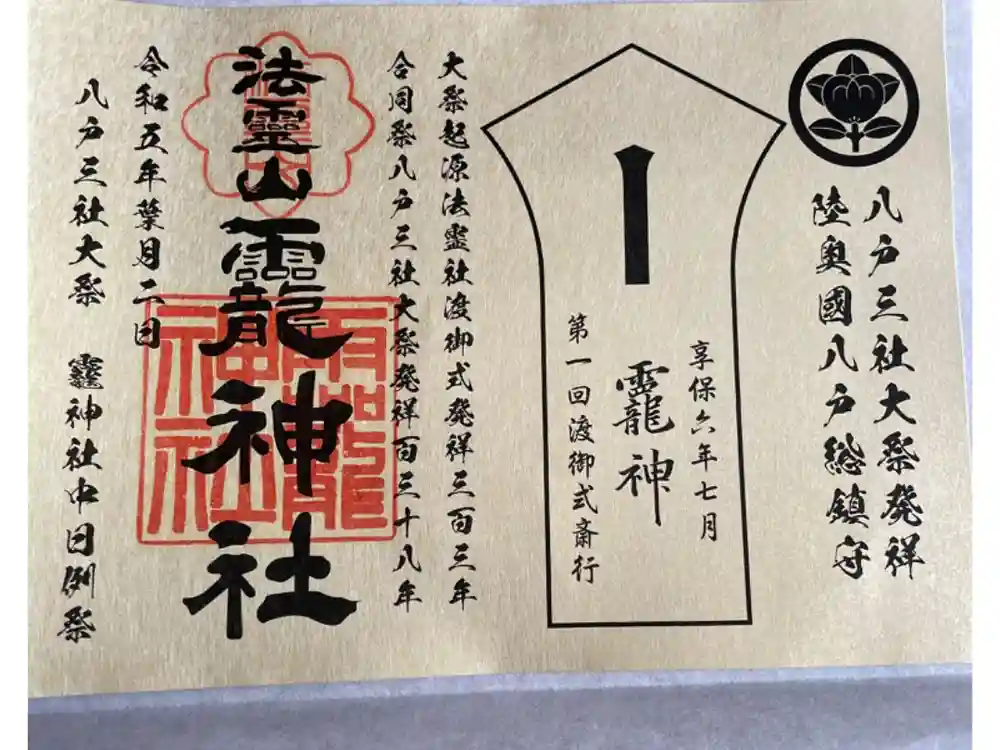 八戸三社大祭発祥
陸奥國八戸総鎮守
享保六年七月
龗神
第一回渡御式斎行
大祭起源法霊社渡御式発祥三百三年
合同祭八戸三社大祭発祥百三十八年
法靈山龗神社
龗神社
令和五年葉月二日
八戸三社大祭 龗神社中日例祭